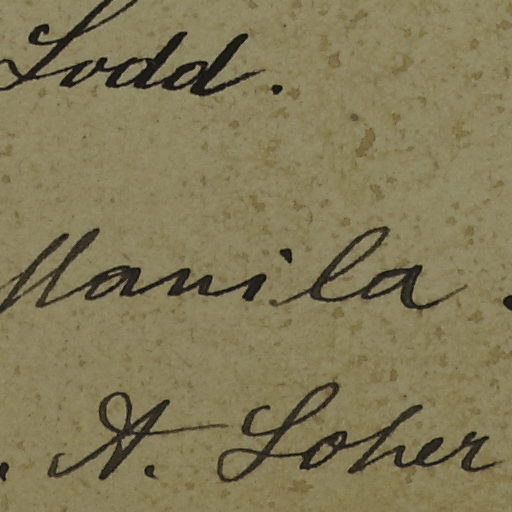 Lodd.
Manila.
. A. Loher